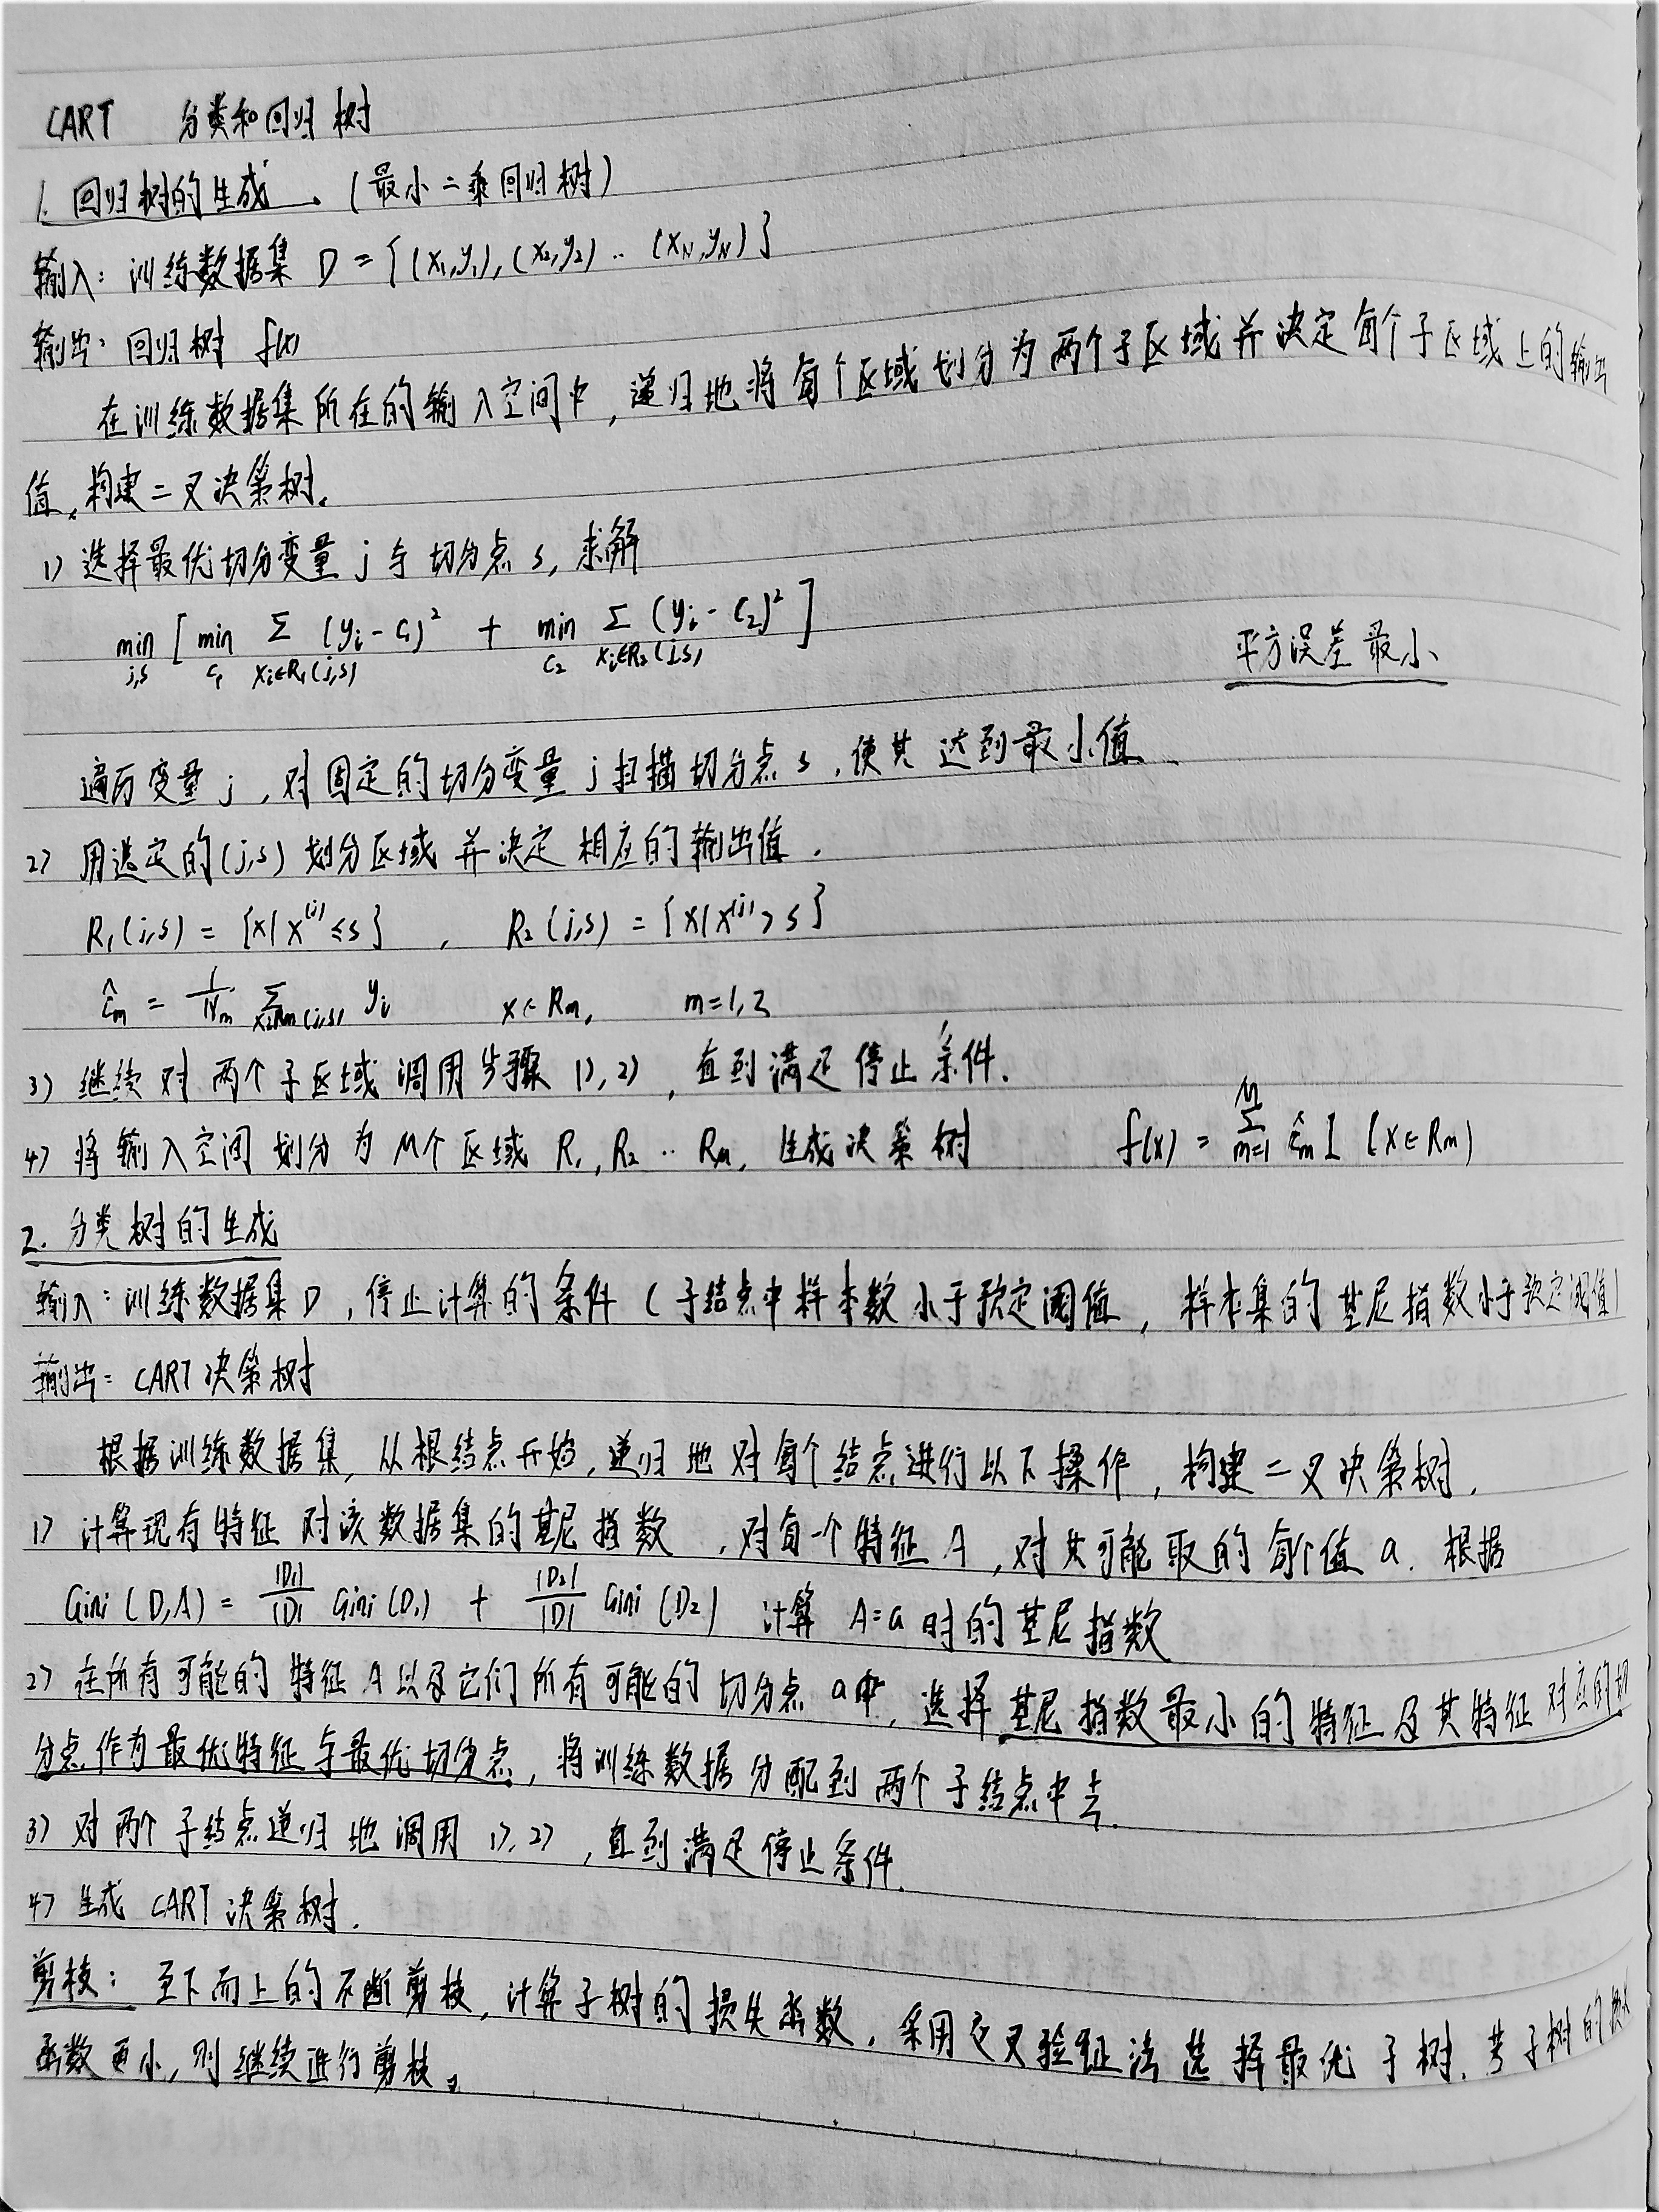 CART 分类和回归树
1. 回归树的生成. (最小二乘回归树)
输入: 训练数据集 D = {(x₁,y₁), (x₂,y₂) .. (x_N,y_N)}
输出: 回归树 f(x)
在训练数据集所在的输入空间中, 递归地将每个区域划分为两个子区域并决定每个子区域上的输出
值, 构建二叉决策树.
1) 选择最优切分变量 j 与切分点 s, 求解
min_{j,s} [ min_{c₁} Σ_{x_i∈R₁(j,s)} (y_i - c₁)² + min_{c₂} Σ_{x_i∈R₂(j,s)} (y_i - c₂)² ]
平方误差最小
遍历变量 j, 对固定的切分变量 j 扫描切分点 s, 使其达到最小值.
2) 用选定的(j,s) 划分区域并决定相应的输出值.
R₁(j,s) = {x|x^(j) ≤ s} , R₂(j,s) = {x|x^(j) > s}
ĉ_m = 1/N_m Σ_{x_i∈R_m(j,s)} y_i x∈R_m, m=1,2
3) 继续对两个子区域调用步骤 1), 2) , 直到满足停止条件.
4) 将输入空间划分为 M个区域 R₁, R₂ .. R_M, 生成决策树 f(x) = Σ_{m=1}^{M} ĉ_m I (x∈R_m)
2. 分类树的生成
输入: 训练数据集D, 停止计算的条件 (子结点中样本数小于预定阈值, 样本集的基尼指数小于预定阈值)
输出: CART 决策树
根据训练数据集, 从根结点开始, 递归地对每个结点进行以下操作, 构建二叉决策树.
1) 计算现有特征对该数据集的基尼指数, 对每一个特征 A, 对其可能取的每个值 a. 根据
Gini(D,A) = |D₁|/|D| Gini(D₁) + |D₂|/|D| Gini(D₂) 计算 A=a 时的基尼指数
2) 在所有可能的特征 A 以及它们所有可能的切分点 a中, 选择基尼指数最小的特征及其特征对应的切
分点作为最优特征与最优切分点, 将训练数据分配到两个子结点中去.
3) 对两个子结点递归地调用 1), 2) , 直到满足停止条件.
4) 生成 CART 决策树.
剪枝: 至下而上的不断剪枝, 计算子树的损失函数. 采用交叉验证法选择最优子树. 若子树的损失
函数更小, 则继续进行剪枝.